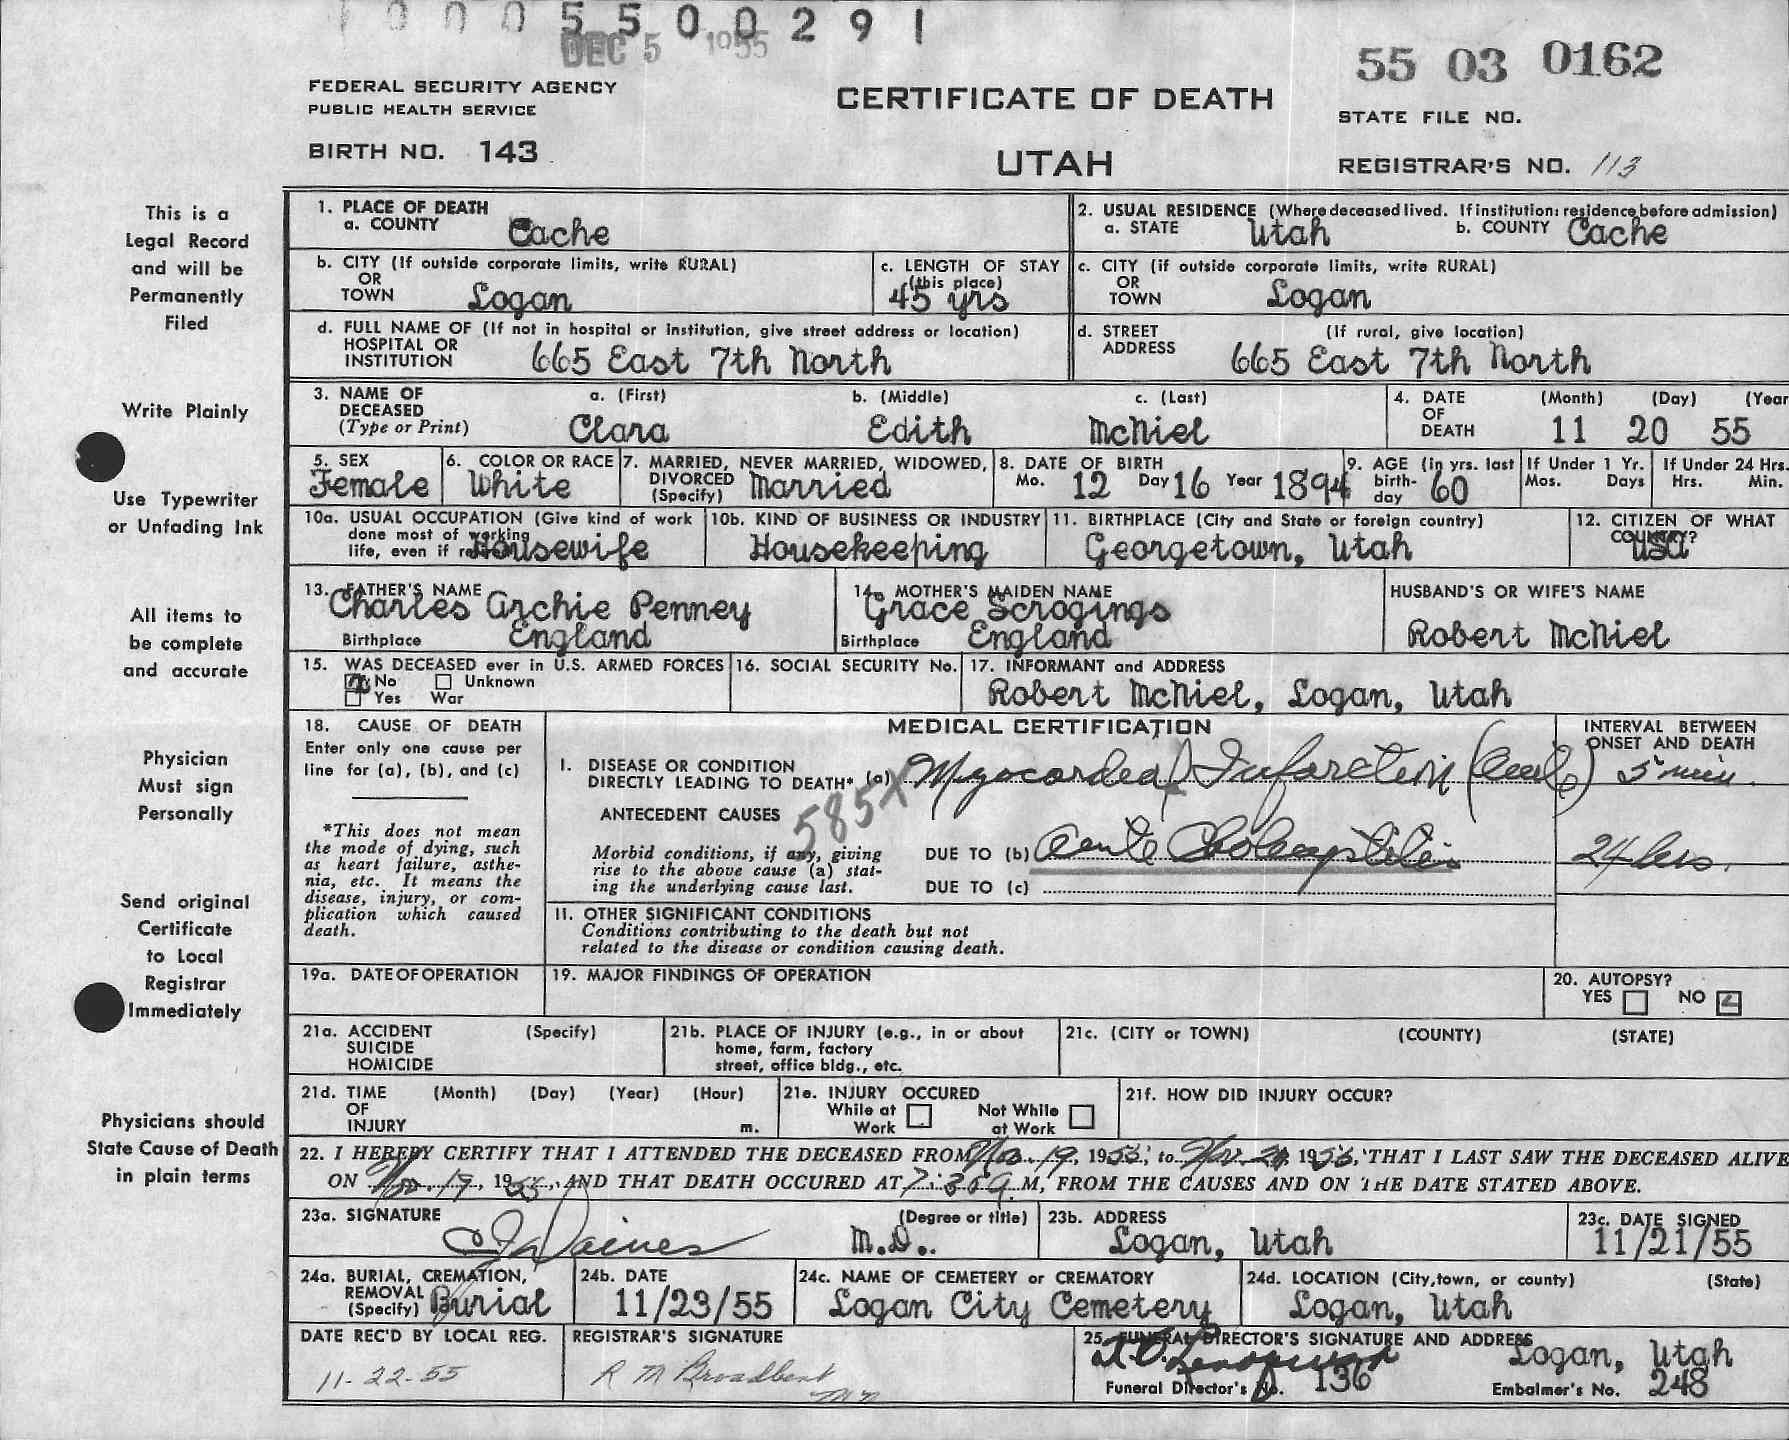 1 0 0 0 5 5 0 0 2 9 1
DEC 5 1955
55 03 0162
FEDERAL SECURITY AGENCY
PUBLIC HEALTH SERVICE
CERTIFICATE OF DEATH
STATE FILE NO.
BIRTH NO. 143
UTAH
REGISTRAR'S NO. 113
This is a
Legal Record
and will be
Permanently
Filed
Write Plainly
Use Typewriter
or Unfading Ink
All items to
be complete
and accurate
Physician
Must sign
Personally
Send original
Certificate
to Local
Registrar
Immediately
Physicians should
State Cause of Death
in plain terms
1. PLACE OF DEATH
a. COUNTY Cache
2. USUAL RESIDENCE (Where deceased lived. If institution: residence before admission)
a. STATE Utah b. COUNTY Cache
b. CITY (If outside corporate limits, write RURAL)
OR
TOWN Logan
c. LENGTH OF STAY
(this place)
45 yrs
c. CITY (if outside corporate limits, write RURAL)
OR
TOWN Logan
d. FULL NAME OF (If not in hospital or institution, give street address or location)
HOSPITAL OR
INSTITUTION 665 East 7th North
d. STREET (If rural, give location)
ADDRESS 665 East 7th North
3. NAME OF a. (First) b. (Middle) c. (Last)
DECEASED
(Type or Print) Clara Edith McNiel
4. DATE (Month) (Day) (Year
OF
DEATH 11 20 55
5. SEX
Female
6. COLOR OR RACE
White
7. MARRIED, NEVER MARRIED, WIDOWED,
DIVORCED
(Specify) Married
8. DATE OF BIRTH
Mo. 12 Day 16 Year 1894
9. AGE (in yrs. last
birth-
day 60
If Under 1 Yr.
Mos. Days
If Under 24 Hrs.
Hrs. Min.
10a. USUAL OCCUPATION (Give kind of work
done most of working
life, even if retired) Housewife
10b. KIND OF BUSINESS OR INDUSTRY
Housekeeping
11. BIRTHPLACE (City and State or foreign country)
Georgetown, Utah
12. CITIZEN OF WHAT
COUNTRY?
USA
13. FATHER'S NAME
Charles Archie Penney
Birthplace England
14. MOTHER'S MAIDEN NAME
Grace Scrogings
Birthplace England
HUSBAND'S OR WIFE'S NAME
Robert McNiel
15. WAS DECEASED ever in U.S. ARMED FORCES
X No Unknown
Yes War
16. SOCIAL SECURITY No.
17. INFORMANT and ADDRESS
Robert McNiel, Logan, Utah
18. CAUSE OF DEATH
Enter only one cause per
line for (a), (b), and (c)
*This does not mean
the mode of dying, such
as heart failure, asthe-
nia, etc. It means the
disease, injury, or com-
plication which caused
death.
MEDICAL CERTIFICATION
INTERVAL BETWEEN
ONSET AND DEATH
I. DISEASE OR CONDITION
DIRECTLY LEADING TO DEATH* (a) Myocardial Infarction (Acute) 5 min
ANTECEDENT CAUSES
585X
Morbid conditions, if any, giving
rise to the above cause (a) stat-
ing the underlying cause last.
DUE TO (b) Acute Cholecystitis 24 hrs.
DUE TO (c)
II. OTHER SIGNIFICANT CONDITIONS
Conditions contributing to the death but not
related to the disease or condition causing death.
19a. DATE OF OPERATION
19. MAJOR FINDINGS OF OPERATION
20. AUTOPSY?
YES NO
21a. ACCIDENT (Specify)
SUICIDE
HOMICIDE
21b. PLACE OF INJURY (e.g., in or about
home, farm, factory
street, office bldg., etc.
21c. (CITY or TOWN) (COUNTY) (STATE)
21d. TIME (Month) (Day) (Year) (Hour)
OF
INJURY m.
21e. INJURY OCCURED
While at Work
Not While at Work
21f. HOW DID INJURY OCCUR?
22. I HEREBY CERTIFY THAT I ATTENDED THE DECEASED FROM Nov. 19, 1955, to Nov. 20, 1955, THAT I LAST SAW THE DECEASED ALIVE
ON Nov. 19, 1955, AND THAT DEATH OCCURED AT 7:35 A M, FROM THE CAUSES AND ON THE DATE STATED ABOVE.
23a. SIGNATURE (Degree or title)
Daines M.D.
23b. ADDRESS
Logan, Utah
23c. DATE SIGNED
11/21/55
24a. BURIAL, CREMATION,
REMOVAL
(Specify) Burial
24b. DATE
11/23/55
24c. NAME OF CEMETERY or CREMATORY
Logan City Cemetery
24d. LOCATION (City, town, or county) (State)
Logan, Utah
DATE REC'D BY LOCAL REG.
11-22-55
REGISTRAR'S SIGNATURE
R M Broadbent
25. FUNERAL DIRECTOR'S SIGNATURE AND ADDRESS
Logan, Utah
Funeral Director's No. 136
Embalmer's No. 248